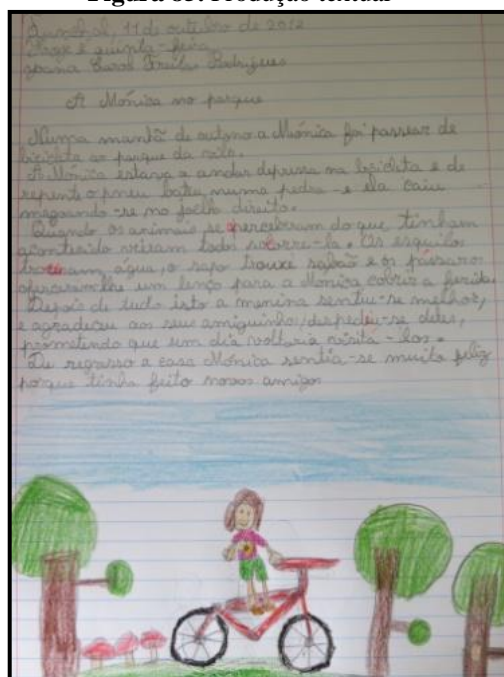 Funchal, 11 de outubro de 2012
Hoje é quinta-feira
Joana Carol Freitas Rodrigues
A Mónica no parque
Numa manhã de outono a Mónica foi passear de
bicicleta ao parque da vila.
A Mónica estava a andar depressa na bicicleta e de
repente o pneu bateu numa pedra e ela caiu
magoando-se no joelho direito.
Quando os animais se aperceberam do que tinham
acontecido vieram todos socorre-la. Os esquilos
trouxeram água, o sapo trouxe sabão e os pássaros
ofereceram-lhe um lenço para a Mónica cobrir a ferida.
Depois de tudo isto a menina sentiu-se melhor,
e agradeceu aos seus amiguinhos, despediu-se deles,
prometendo que um dia voltaria visita-los.
De regresso a casa Mónica sentia-se muito feliz
porque tinha feito novos amigos